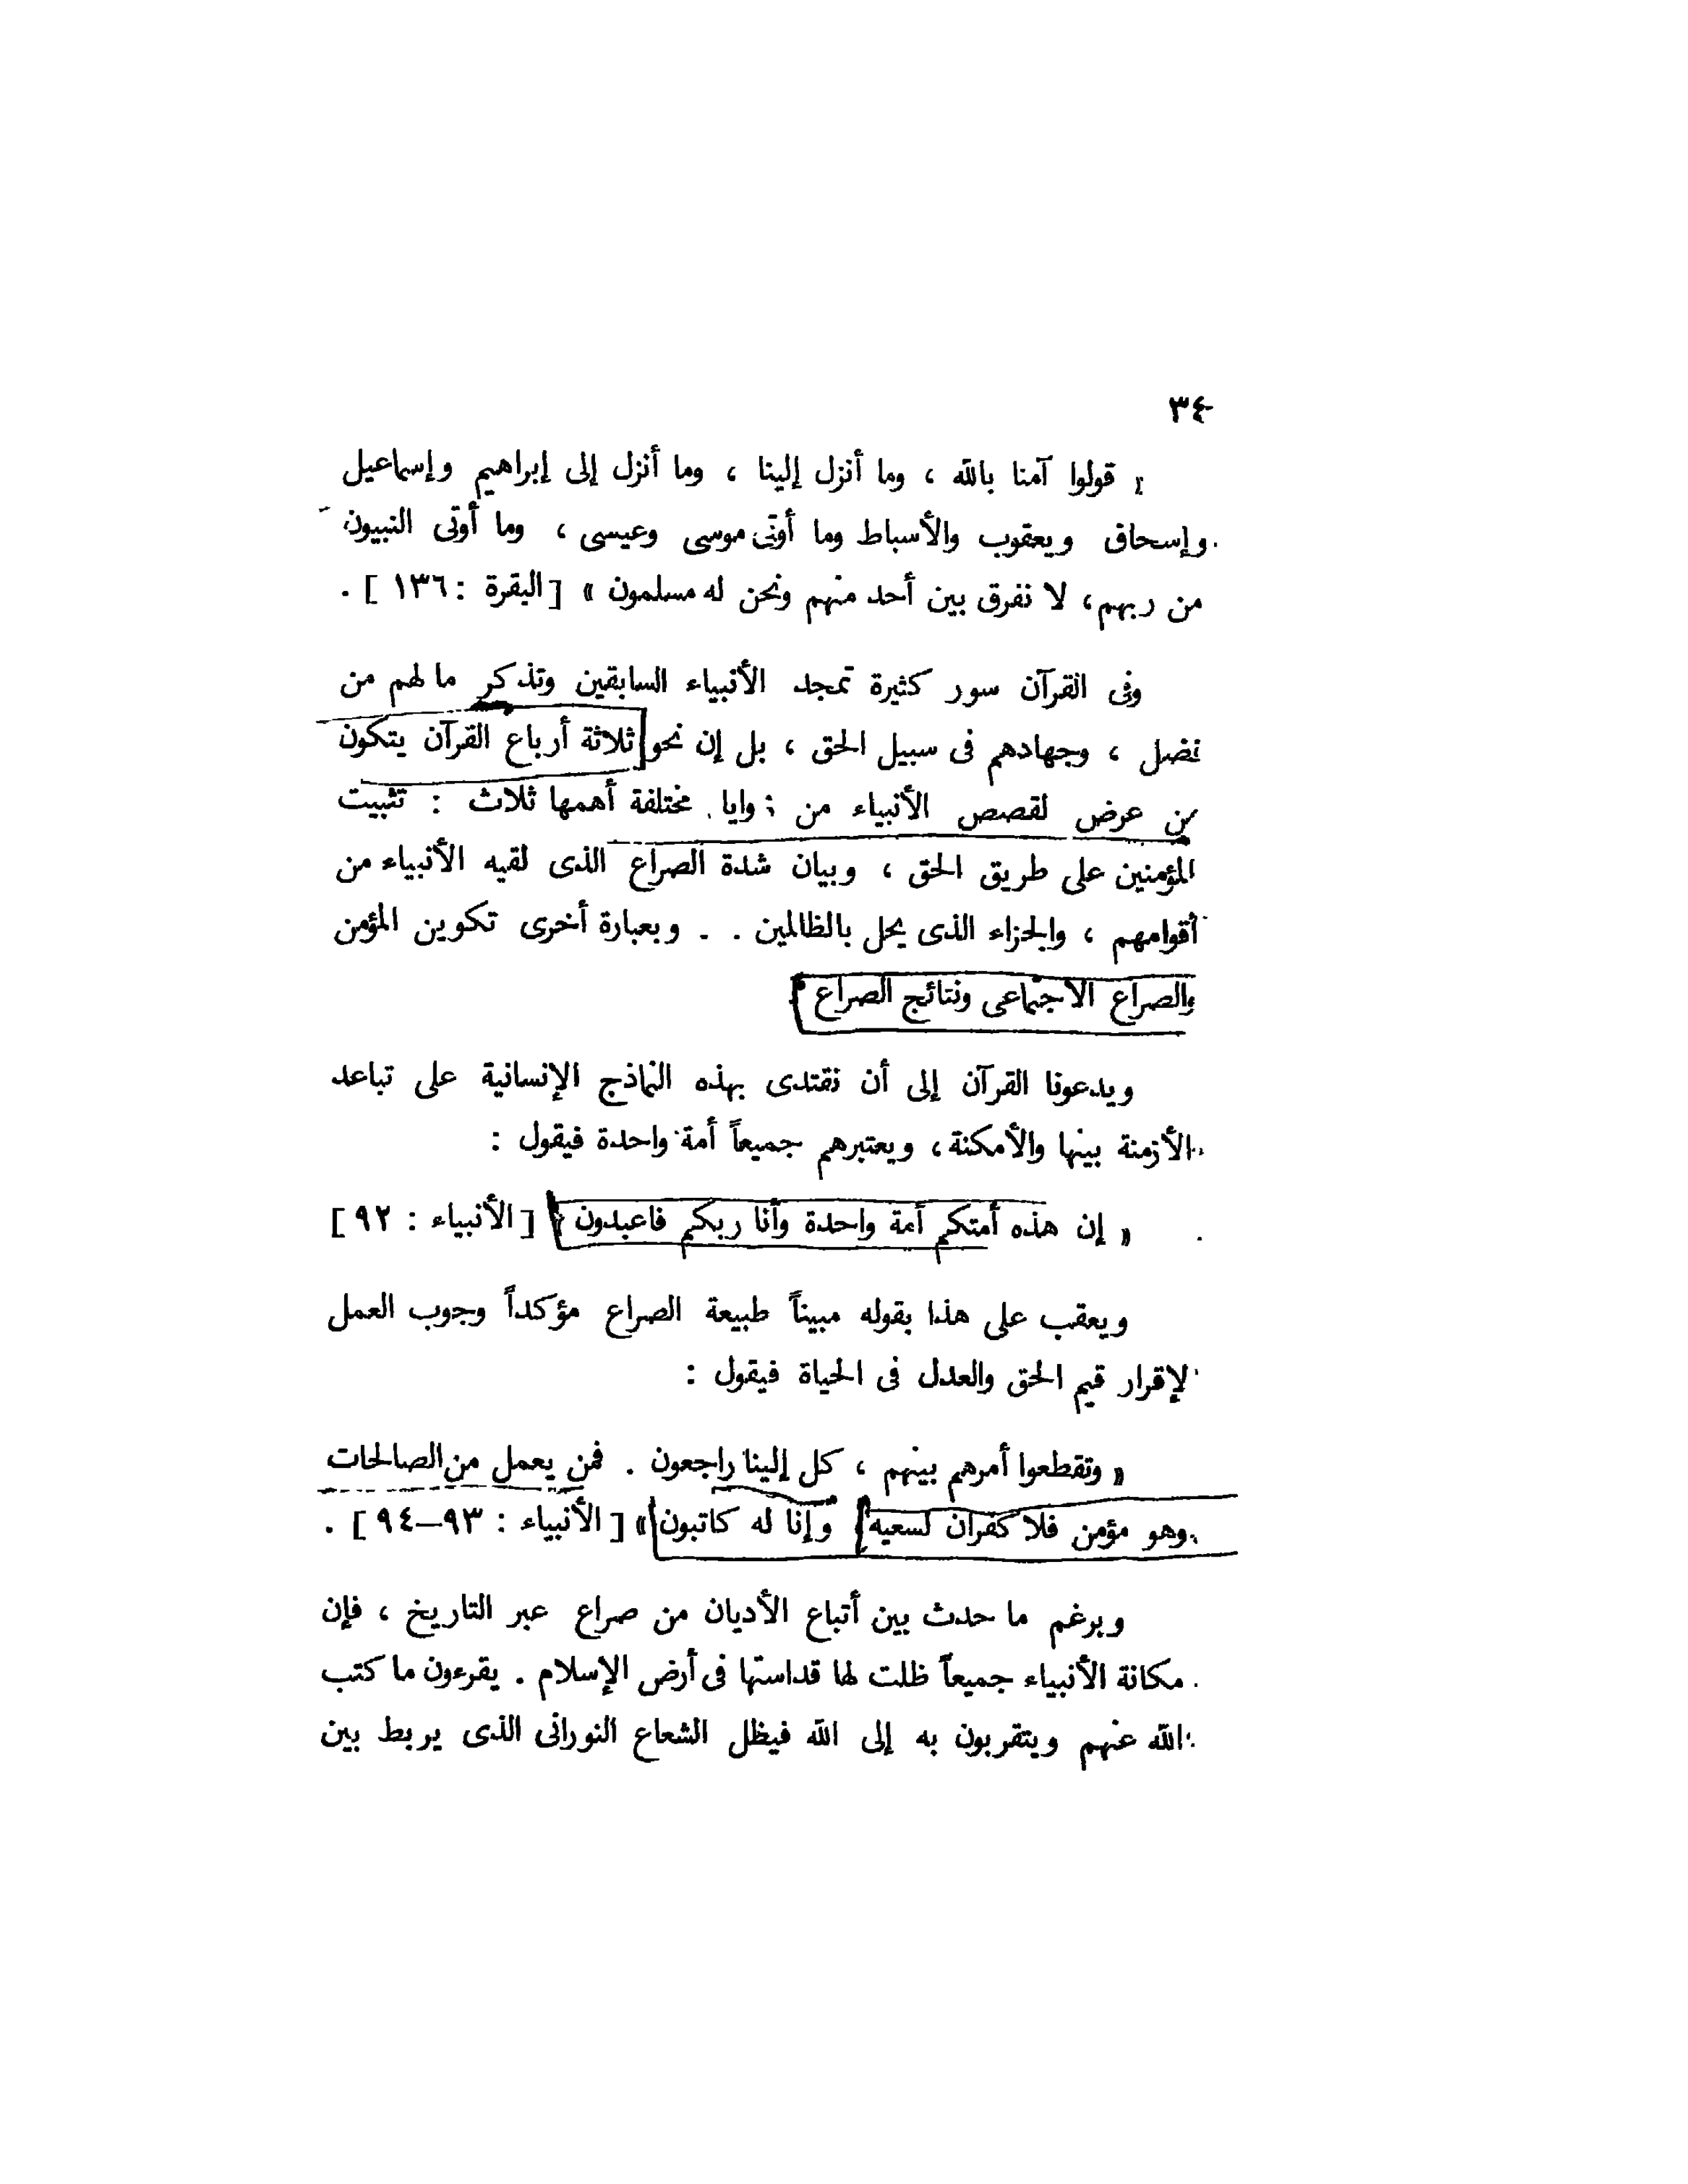 ٣٤
« قولوا آمنا بالله ، وما أنزل إلينا ، وما أنزل إلى إبراهيم وإسماعيل
وإسحاق ويعقوب والأسباط وما أوتى موسى وعيسى ، وما أوتى النبيون
من ربهم ، لا نفرق بين أحد منهم ونحن له مسلمون » [ البقرة : ١٣٦ ] .
وفى القرآن سور كثيرة تمجد الأنبياء السابقين وتذكر ما لهم من
فضل ، وجهادهم فى سبيل الحق ، بل إن نحو ثلاثة أرباع القرآن يتكون
من عرض لقصص الأنبياء من زوايا مختلفة أهمها ثلاث : تثبيت
المؤمنين على طريق الحق ، وبيان شدة الصراع الذى لقيه الأنبياء من
أقوامهم ، والجزاء الذى يحل بالظالمين . . وبعبارة أخرى تكوين المؤمن
والصراع الاجتماعى ونتائج الصراع .
ويدعونا القرآن إلى أن نقتدى بهذه النماذج الإنسانية على تباعد
الأزمنة بينها والأمكنة ، ويعتبرهم جميعاً أمة واحدة فيقول :
« إن هذه أمتكم أمة واحدة وأنا ربكم فاعبدون » [ الأنبياء : ٩٢ ]
ويعقب على هذا بقوله مبيناً طبيعة الصراع مؤكداً وجوب العمل
لإقرار قيم الحق والعدل فى الحياة فيقول :
« وتقطعوا أمرهم بينهم ، كل إلينا راجعون . فمن يعمل من الصالحات
وهو مؤمن فلا كفران لسعيه وإنا له كاتبون » [ الأنبياء : ٩٣–٩٤ ] .
وبرغم ما حدث بين أتباع الأديان من صراع عبر التاريخ ، فإن
مكانة الأنبياء جميعاً ظلت لها قداستها فى أرض الإسلام . يقرءون ما كتب
الله عنهم ويتقربون به إلى الله فيظل الشعاع النورانى الذى يربط بين